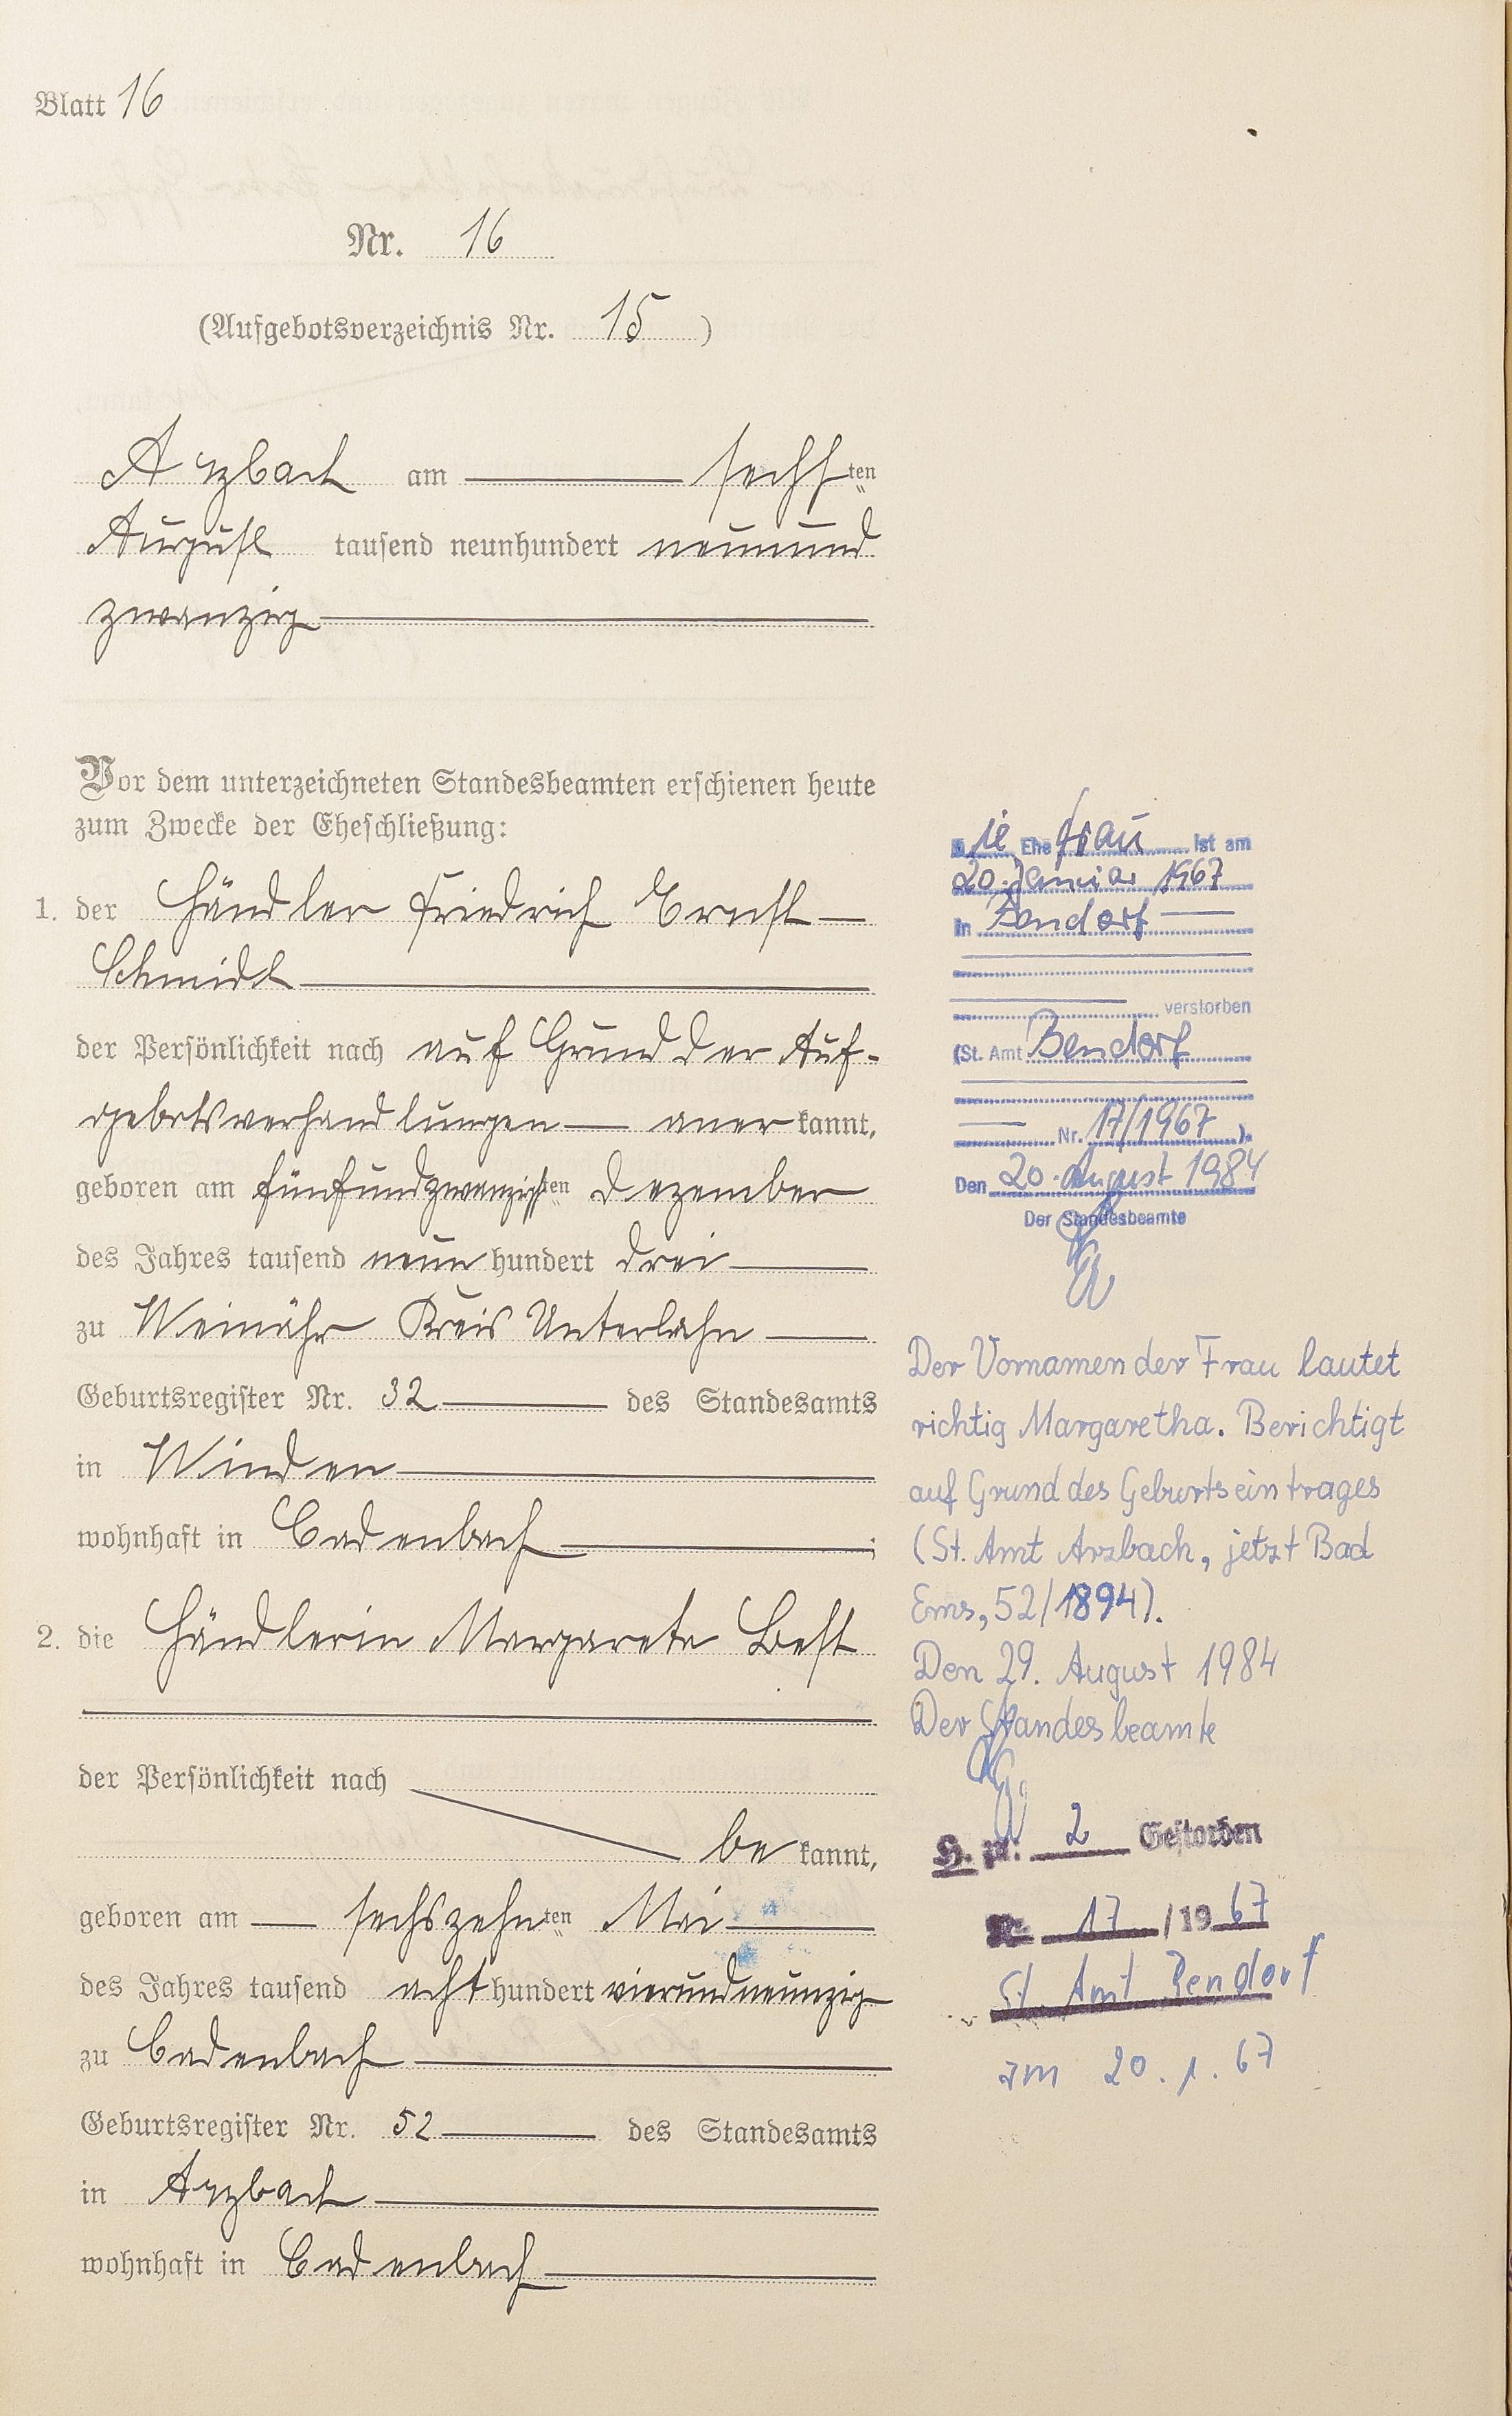 Blatt 16
Nr. 16
(Aufgebotsverzeichnis Nr. 15 )
Arzbach am sechsten
August tausend neunhundert neunund
zwanzig
Vor dem unterzeichneten Standesbeamten erschienen heute
zum Zwecke der Eheschließung:
1. der Händler Friedrich Ernst
Schmidt
der Persönlichkeit nach auf Grund der Auf-
gebotsverhandlungen anerkannt,
geboren am fünfundzwanzigsten Dezember
des Jahres tausend neunhundert drei
zu Weinähr Kreis Unterlahn
Geburtsregister Nr. 32 des Standesamts
in Winden
wohnhaft in Cadenbach ;
2. die Händlerin Margarete Best
der Persönlichkeit nach
bekannt,
geboren am sechszehnten Mai
des Jahres tausend achthundert vierundneunzig
zu Cadenbach
Geburtsregister Nr. 52 des Standesamts
in Arzbach
wohnhaft in Cadenbach
Die Ehefrau ist am
20. Januar 1967
in Bendorf
verstorben
(St. Amt Bendorf
Nr. 17/1967 ).
Den 20. August 1984
Der Standesbeamte
Der Vornamen der Frau lautet
richtig Margaretha. Berichtigt
auf Grund des Geburtseintrages
(St. Amt Arzbach, jetzt Bad
Ems, 52/1894).
Den 29. August 1984
Der Standesbeamte
2 Gestorben
Nr. 17 / 1967
St. Amt Bendorf
am 20.1.67